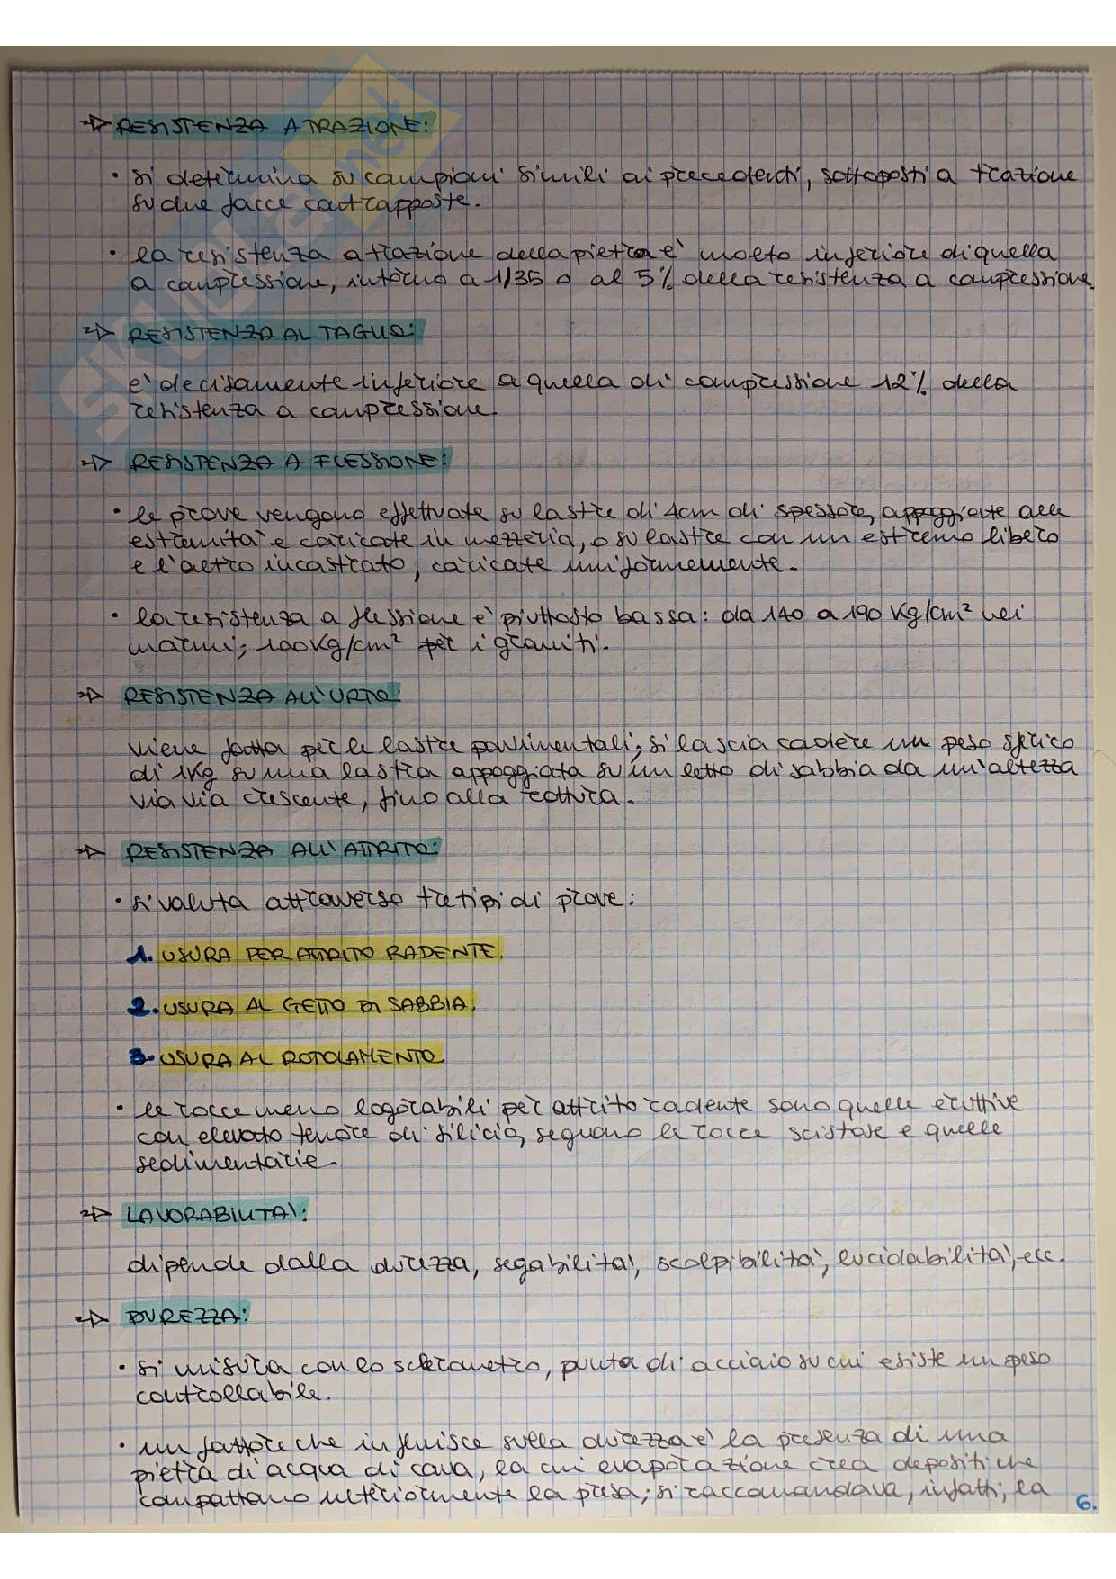 RESISTENZA A TRAZIONE:
• si determina su campioni simili ai precedenti, sottoposti a trazione
su due facce contrapposte.
• la resistenza a trazione della pietra e' molto inferiore di quella
a compressione, intorno a 1/35 o al 5% della resistenza a compressione.
RESISTENZA AL TAGLIO:
e' decisamente inferiore a quella di compressione 12% della
resistenza a compressione.
RESISTENZA A FLESSIONE:
• le prove vengono effettuate su lastre di 4cm di spessore, appoggiate alle
estremita' e caricate in mezzeria, o su lastre con un estremo libero
e l'altro incastrato, caricate uniformemente.
• la resistenza a flessione e' piuttosto bassa: da 140 a 190 Kg/cm² nei
marmi; 100Kg/cm² per i graniti.
RESISTENZA ALL'URTO:
viene fatta per le lastre pavimentali; si lascia cadere un peso sferico
di 1Kg su una lastra appoggiata su un letto di sabbia da un'altezza
via via crescente, fino alla rottura.
RESISTENZA ALL'ATTRITO:
• si valuta attraverso tre tipi di prove:
1. USURA PER ATTRITO RADENTE.
2. USURA AL GETTO DI SABBIA.
3. USURA AL ROTOLAMENTO.
• le rocce meno logorabili per attrito radente sono quelle eruttive
con elevato tenore di silicio, seguono le rocce scistose e quelle
sedimentarie.
LAVORABILITA':
dipende dalla durezza, segabilita', scolpibilita', lucidabilita', ecc.
DUREZZA:
• si misura con lo sclerometro, punta di acciaio su cui esiste un peso
controllabile.
• un fattore che influisce sulla durezza e' la presenza di una
pietra di acqua di cava, la cui evaporazione crea depositi che
compattano ulteriormente la presa; si raccomandava, infatti, la
6.
SKUOLA.net